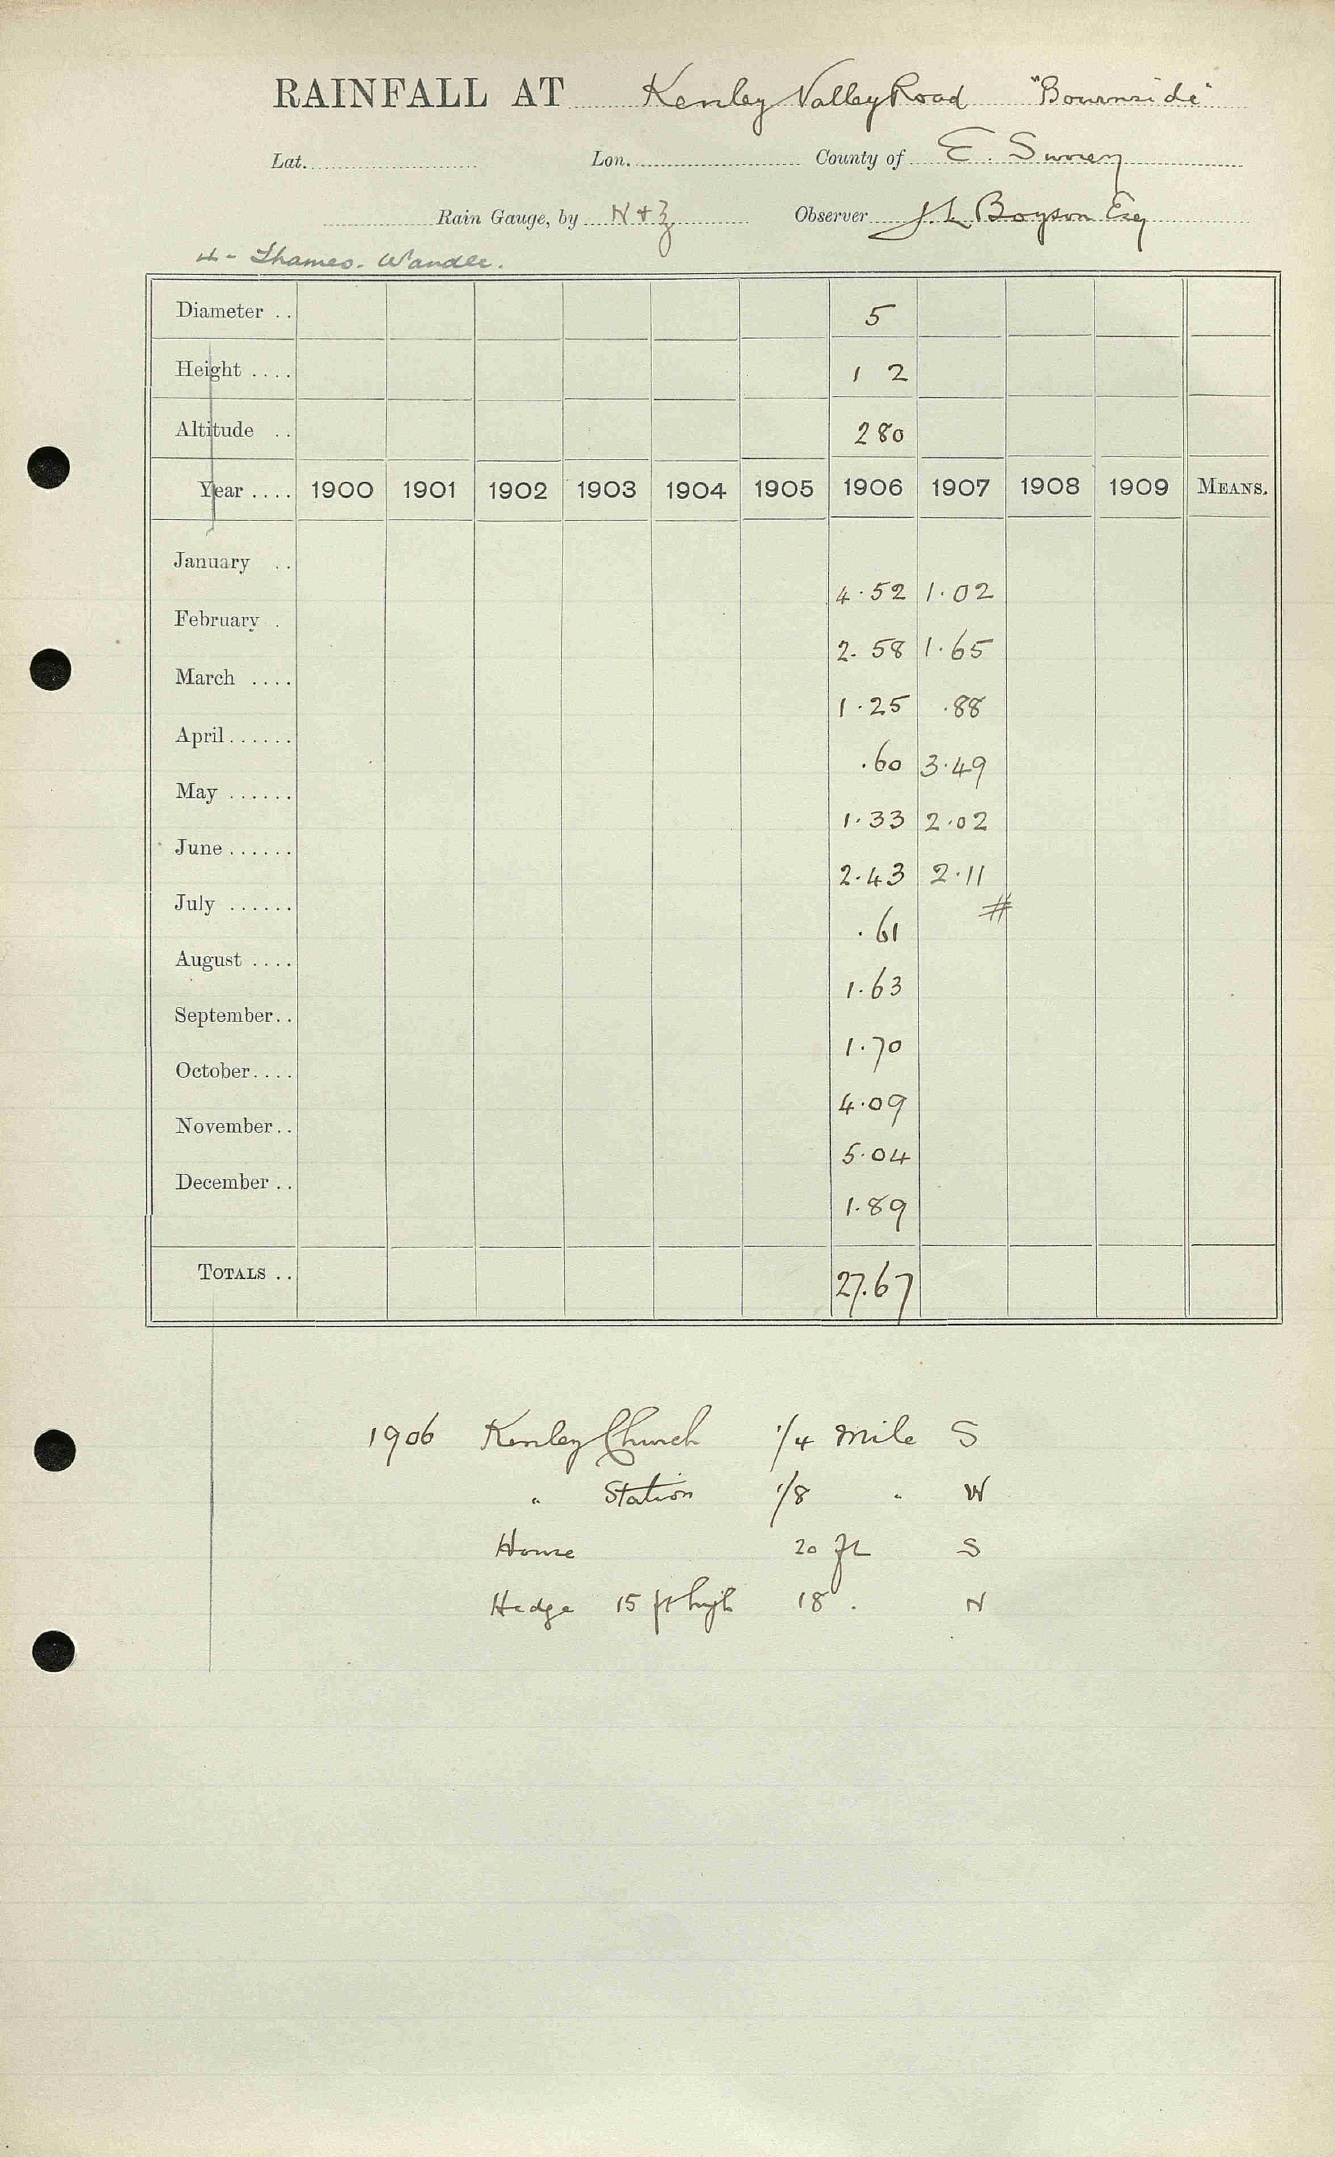 RAINFALL AT Kenley Valley Road "Bournside"
Lat. Lon. County of E. Surrey
Rain Gauge, by N + Z Observer J. L. Boyson Esq
4 - Thames. Wandle.
Diameter .. 5
Height .... 1 2
Altitude .. 280
Year .... 1900 1901 1902 1903 1904 1905 1906 1907 1908 1909 MEANS.
January .. 4.52 1.02
February . 2.58 1.65
March .... 1.25 .88
April...... .60 3.49
May ...... 1.33 2.02
June ...... 2.43 2.11
July ...... .61 #
August .... 1.63
September.. 1.70
October.... 4.09
November.. 5.04
December .. 1.89
TOTALS .. 27.67
1906 Kenley Church 1/4 mile S
" Station 1/8 " W
House 20 ft S
Hedge 15 ft high 18 " N